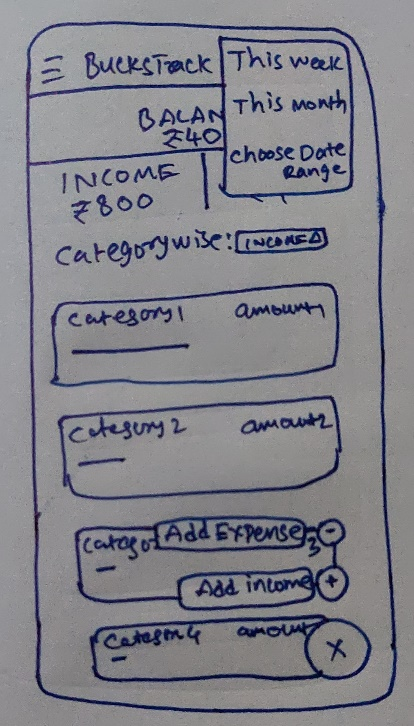 ☰ BUCKSTRACK
This week
This month
Choose Date
Range
BALAN
₹40
INCOME
₹800
Categorywise: INCOME
Category1 amount1
Category2 amount2
Catego 3
Add Expense -
Add income +
Category4 amount
X